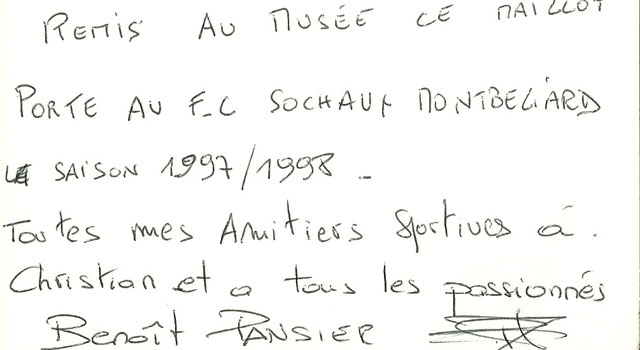 REMIS AU MUSÉE CE MAILLOT
PORTE AU F.C SOCHAUX MONTBELIARD
LA SAISON 1997/1998 -
Toutes mes Amitiers Sportives à.
Christian et a tous les passionnés
Benoît PANSIER